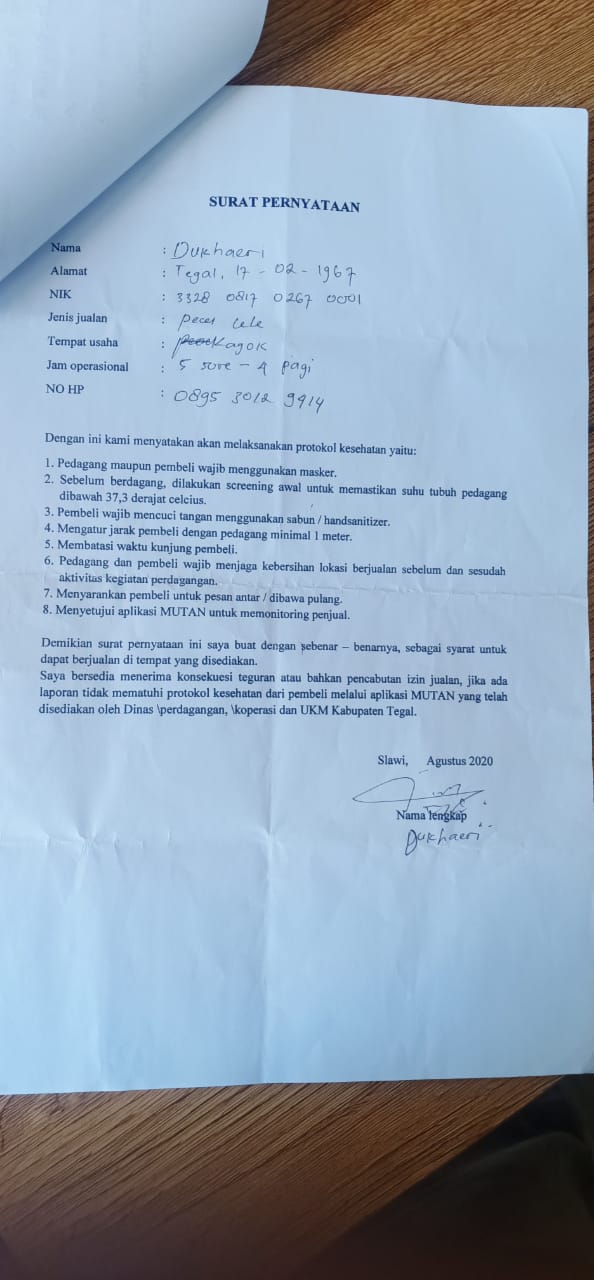 SURAT PERNYATAAN
Nama : Dukhaeri
Alamat : Tegal, 17 - 02 - 1967
NIK : 3328 0817 0267 0001
Jenis jualan : Pecel lele
Tempat usaha : Kagok
Jam operasional : 5 sore - 4 pagi
NO HP : 0895 3012 9914
Dengan ini kami menyatakan akan melaksanakan protokol kesehatan yaitu:
1. Pedagang maupun pembeli wajib menggunakan masker.
2. Sebelum berdagang, dilakukan screening awal untuk memastikan suhu tubuh pedagang
dibawah 37,3 derajat celcius.
3. Pembeli wajib mencuci tangan menggunakan sabun / handsanitizer.
4. Mengatur jarak pembeli dengan pedagang minimal 1 meter.
5. Membatasi waktu kunjung pembeli.
6. Pedagang dan pembeli wajib menjaga kebersihan lokasi berjualan sebelum dan sesudah
aktivitas kegiatan perdagangan.
7. Menyarankan pembeli untuk pesan antar / dibawa pulang.
8. Menyetujui aplikasi MUTAN untuk memonitoring penjual.
Demikian surat pernyataan ini saya buat dengan sebenar – benarnya, sebagai syarat untuk
dapat berjualan di tempat yang disediakan.
Saya bersedia menerima konsekuesi teguran atau bahkan pencabutan izin jualan, jika ada
laporan tidak mematuhi protokol kesehatan dari pembeli melalui aplikasi MUTAN yang telah
disediakan oleh Dinas \perdagangan, \koperasi dan UKM Kabupaten Tegal.
Slawi, Agustus 2020
Nama lengkap
Dukhaeri